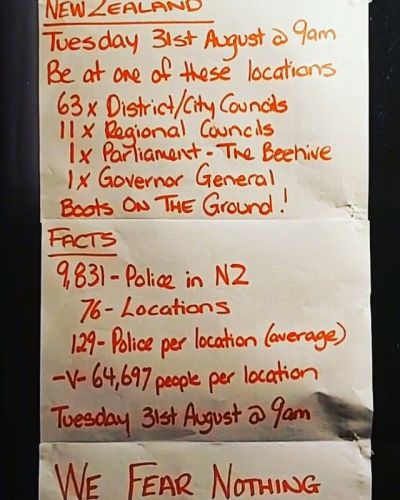 NEW ZEALAND
Tuesday 31st August @ 9am
Be at one of these locations
63 x District/City Councils
11 x Regional Councils
1 x Parliament - The Beehive
1 x Governor General
Boots ON THE Ground!
FACTS
9,831 - Police in NZ
76 - Locations
129 - Police per location (average)
-V- 64,697 people per location
Tuesday 31st August @ 9am
WE FEAR NOTHING